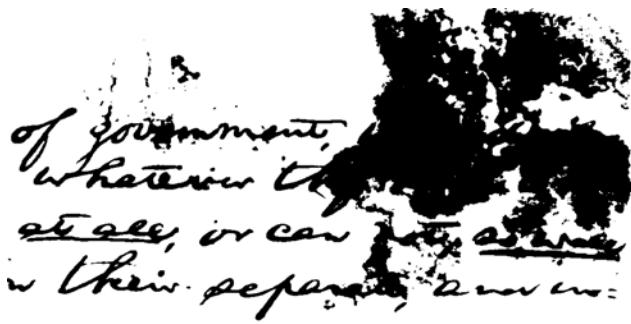 of government,
whatever th
at all, or can not, so well
their separate, and in=